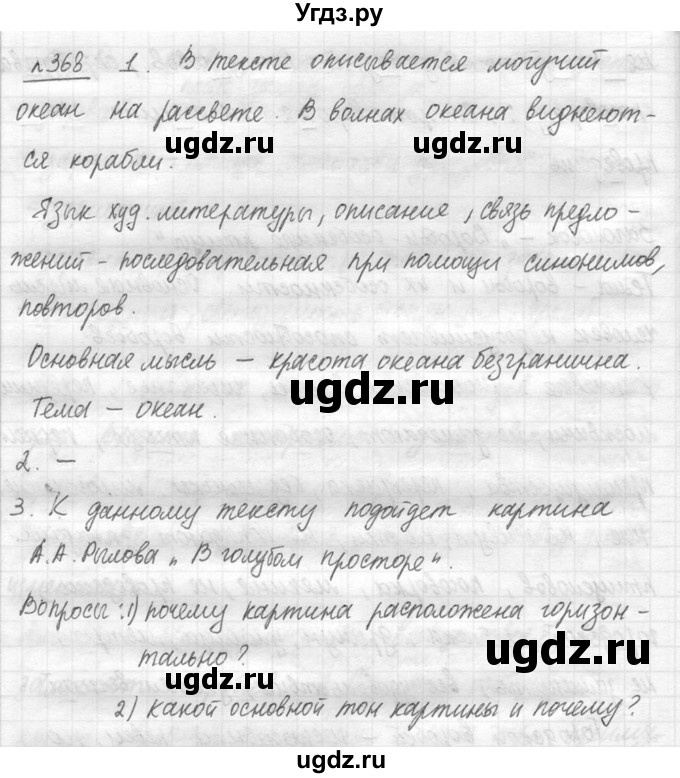 Угдз.ру
№368 1. В тексте описывается могучий
океан на рассвете. В волнах океана виднеют-
ugdz.ru ugdz.ru
ся корабли.
Язык худ. литературы, описание, связь предло-
жений - последовательная при помощи синонимов,
повторов.
Основная мысль – красота океана безгранична.
ugdz.ru
Тема – океан.
2. –
3. К данному тексту подойдет картина
А.А. Рылова „В голубом просторе".
ugdz.ru ugdz.ru
Вопросы: 1) почему картина расположена горизон-
тально?
ugdz.ru ugdz.ru
2) какой основной тон картины и почему?
ugdz.ru